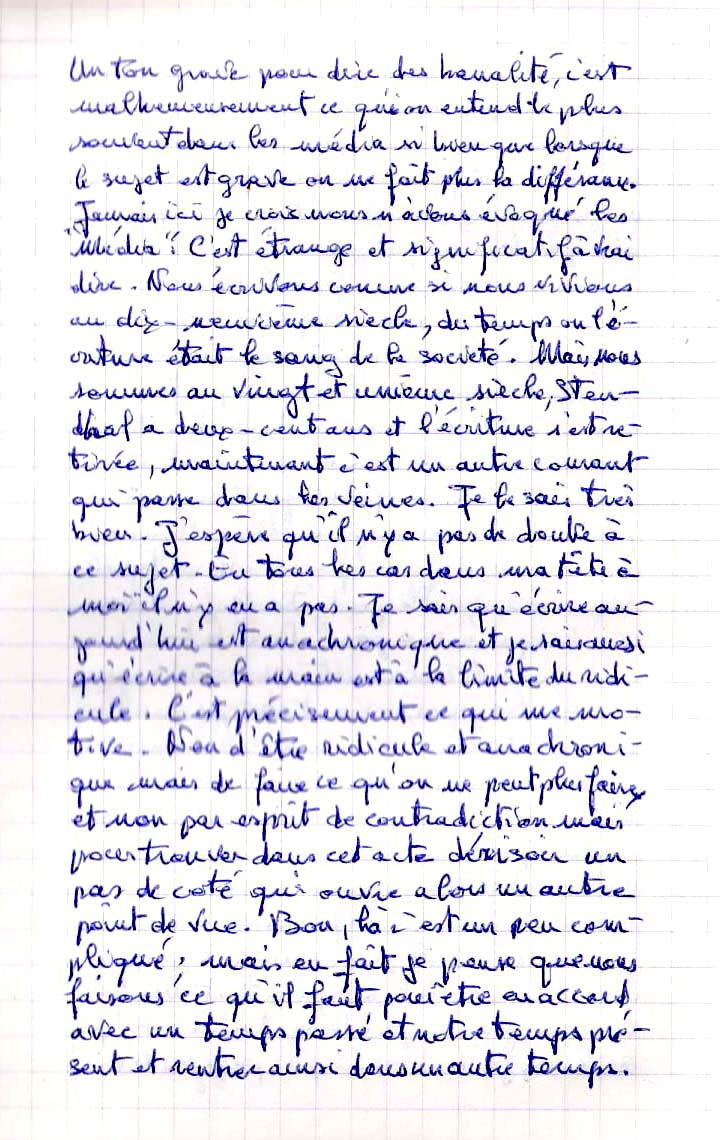 Un ton grave pour dire des banalité, c'est
malheureusement ce qu'on entend le plus
souvent dans les média si bien que lorsque
le sujet est grave on ne fait plus la différence.
Jamais ici je crois nous n'avons évoqué les
"média". C'est étrange et significatif à vrai
dire. Nous écrivons comme si nous vivions
au dix-neuvième siècle, du temps où l'é-
criture était le sang de la société. Mais nous
sommes au vingt et unième siècle, Sten-
dhal a deux-cent ans et l'écriture s'est re-
tirée, maintenant c'est un autre courant
qui passe dans les veines. Je le sais très
bien. J'espère qu'il n'y a pas de doute à
ce sujet. En tous les cas dans ma tête à
moi il n'y en a pas. Je sais qu'écrire au-
jourd'hui est anachronique et je sais aussi
qu'écrire à la main est à la limite du ridi-
cule. C'est précisement ce qui me mo-
tive. Non d'être ridicule et anachroni-
que mais de faire ce qu'on ne peut plus faire,
et non par esprit de contradiction mais
pour trouver dans cet acte dérisoir un
pas de coté qui ouvre alors un autre
point de vue. Bon, là c'est un peu com-
pliqué, mais en fait je pense que nous
faisons ce qu'il faut pour être en accord
avec un temps passé et notre temps pré-
sent et rentrer ainsi dans un autre temps.